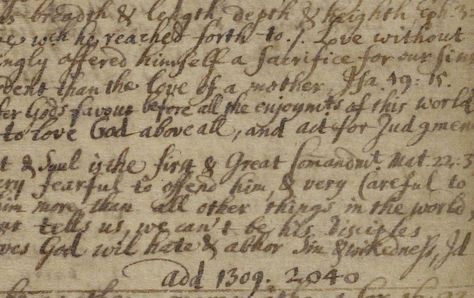 breadth & length depth & heighth Eph: 3
wch he reached forth to /. Love without
ingly offered himself a Sacrifice for our sins
than the love of a mother, Isa. 49: 15.
Gods favour before all the enjoymts of this world
to love God above all, and act for Judgmen
& Soul is the first & Great Comandmt. Mat. 22: 3
ery fearful to offend him, & very Careful to
him more, than all other things in the world
tells us, we can't be his disciples
ves God will hate & abhor Sin & wickedness,
add 1309. 2040